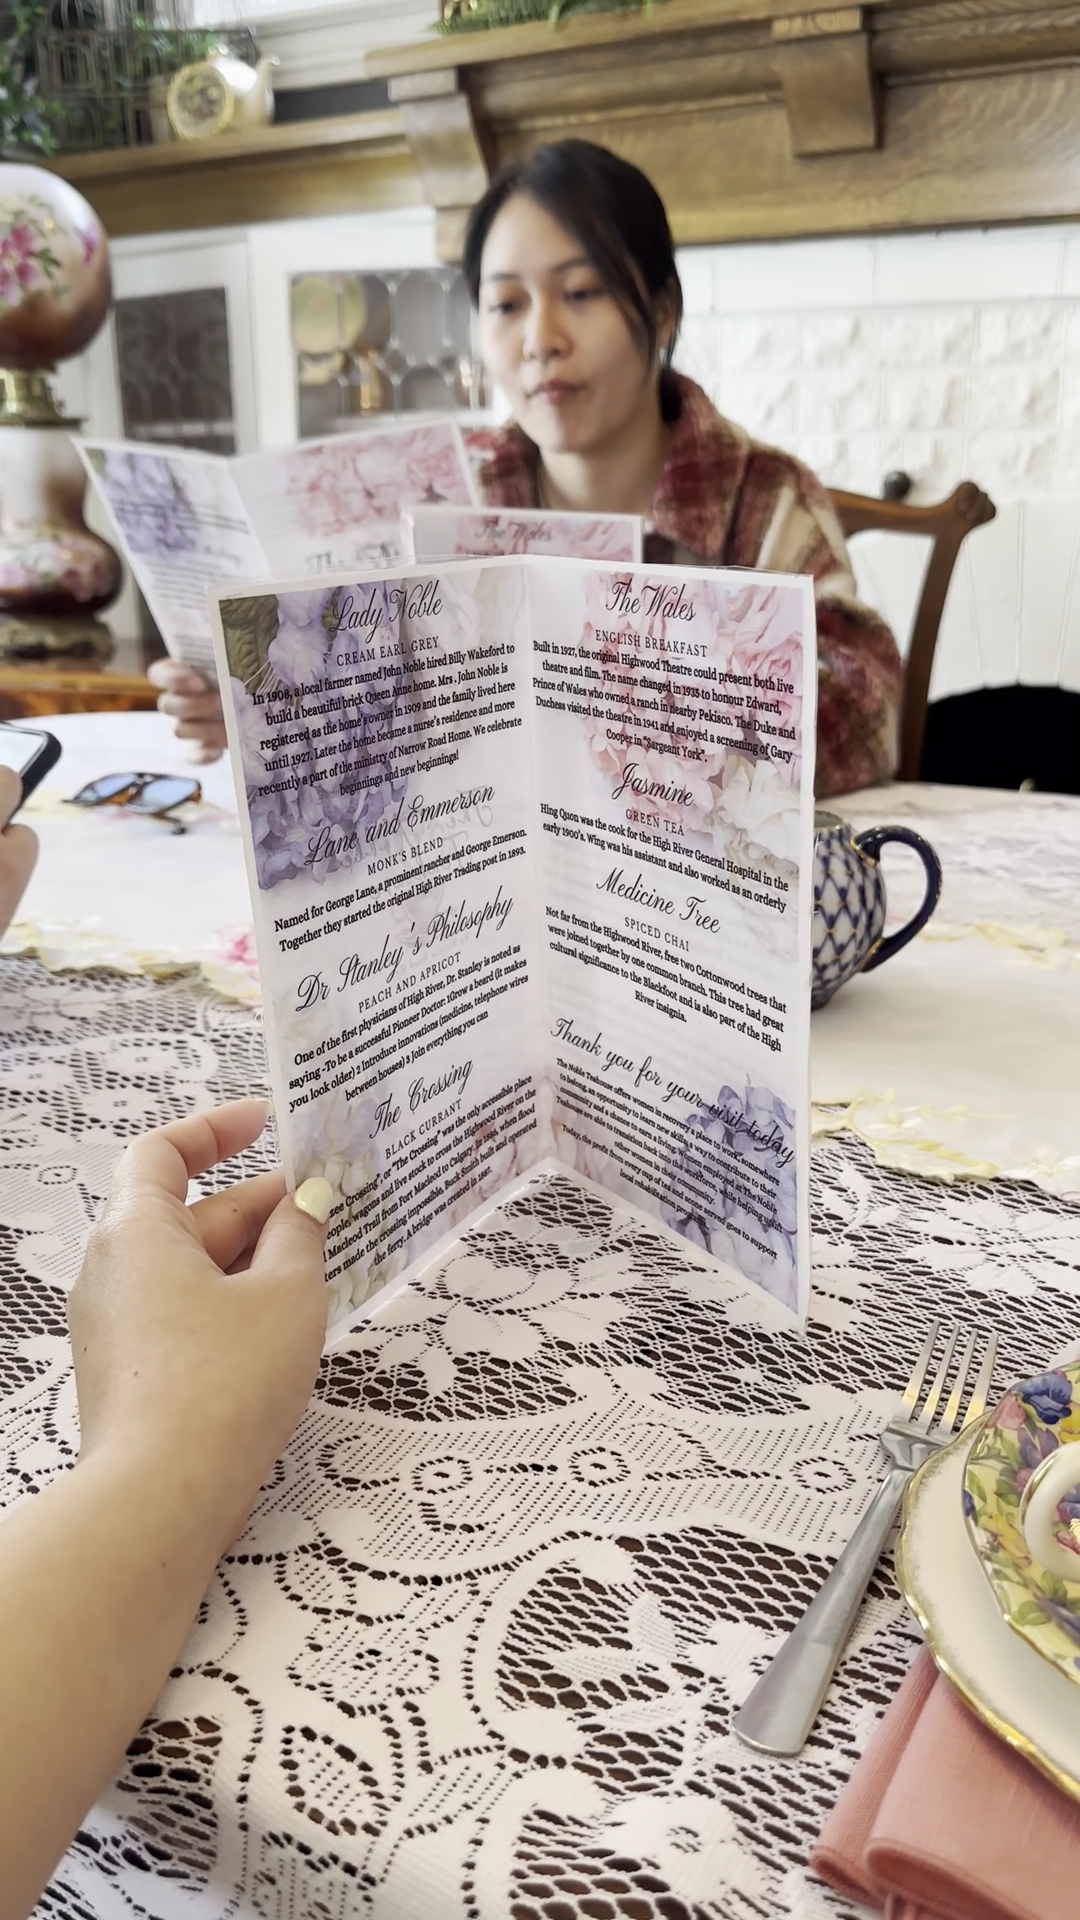 The Wales
Lady Noble
CREAM EARL GREY
In 1908, a local farmer named John Noble hired Billy Wakeford to
build a beautiful brick Queen Anne home. Mrs. John Noble is
registered as the home's owner in 1909 and the family lived here
until 1927. Later the home became a nurse's residence and more
recently a part of the ministry of Narrow Road Home. We celebrate
beginnings and new beginnings!
Lane and Emmerson
MONK'S BLEND
Named for George Lane, a prominent rancher and George Emerson.
Together they started the original High River Trading post in 1893.
Dr Stanley's Philosophy
PEACH AND APRICOT
One of the first physicians of High River, Dr. Stanley is noted as
saying -To be a successful Pioneer Doctor: 1Grow a beard (it makes
you look older) 2 Introduce innovations (medicine, telephone wires
between houses) 3 Join everything you can
The Crossing
BLACK CURRANT
Crossing", or "The Crossing" was the only accessible place
people, wagons and live stock to cross the Highwood River on the
Macleod Trail from Fort Macleod to Calgary. In 1886, when flood
made the crossing impossible, Buck Smith built and operated
the ferry. A bridge was created in 1897.
The Wales
ENGLISH BREAKFAST
Built in 1927, the original Highwood Theatre could present both live
theatre and film. The name changed in 1935 to honour Edward,
Prince of Wales who owned a ranch in nearby Pekisco. The Duke and
Duchess visited the theatre in 1941 and enjoyed a screening of Gary
Cooper in "Sargeant York".
Jasmine
GREEN TEA
Hing Quon was the cook for the High River General Hospital in the
early 1900's. Wing was his assistant and also worked as an orderly
Medicine Tree
SPICED CHAI
Not far from the Highwood River, free two Cottonwood trees that
were joined together by one common branch. This tree had great
cultural significance to the Blackfoot and is also part of the High
River insignia.
Thank you for your visit today
The Noble Teahouse offers women in recovery a place to work, somewhere
to belong, an opportunity to learn new skills, a way to contribute to their
community and a chance to earn a living. Women employed at The Noble
Teahouse are able to transition back into the workforce, while helping uplift
other women in their community.
Today, the profit from every cup of tea and scone served goes to support
local rehabilitation